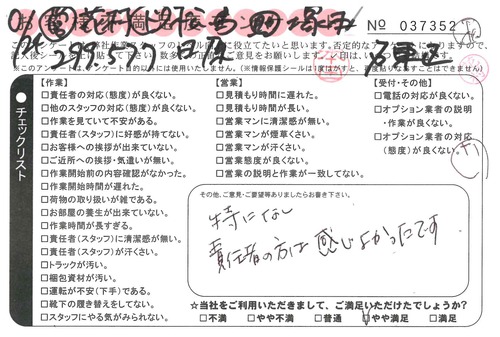 No 037352
このアンケートは
【作業】
□責任者の対応(態度)が良くない。
□他のスタッフの対応(態度)が良くない。
□作業を見ていて不安がある。
□責任者(スタッフ)に好感が持てない。
□お客様への挨拶が出来ていない。
□ご近所への挨拶・気遣いが無い。
□作業開始前の内容確認がなかった。
□作業開始時間が遅れた。
□荷物の取り扱いが雑である。
□お部屋の養生が出来ていない。
□作業時間が長すぎる。
□責任者(スタッフ)に清潔感が無い。
□責任者(スタッフ)が汗くさい。
□トラックが汚い。
□梱包資材が汚い。
□運転が不安(下手)である。
□靴下の履き替えをしてない。
□スタッフにやる気がみられない。
【営業】
□見積もり時間に遅れた。
□見積もり時間が長い。
□営業マンに清潔感が無い。
□営業マンが煙草くさい。
□営業マンが汗くさい。
□営業態度が良くない。
□営業の説明と作業が一致してない。
【受付・その他】
□電話の対応が良くない。
□オプション業者の説明
・作業が良くない。
□オプション業者の対応
(態度)が良くない。
チェックリスト
その他、ご意見・ご要望等ありましたらお書き下さい。
特になし
責任者の方は感じよかったです
☆当社をご利用いただきまして、ご満足いただけたでしょうか?
□不満 □やや不満 □普通 □やや満足 □満足